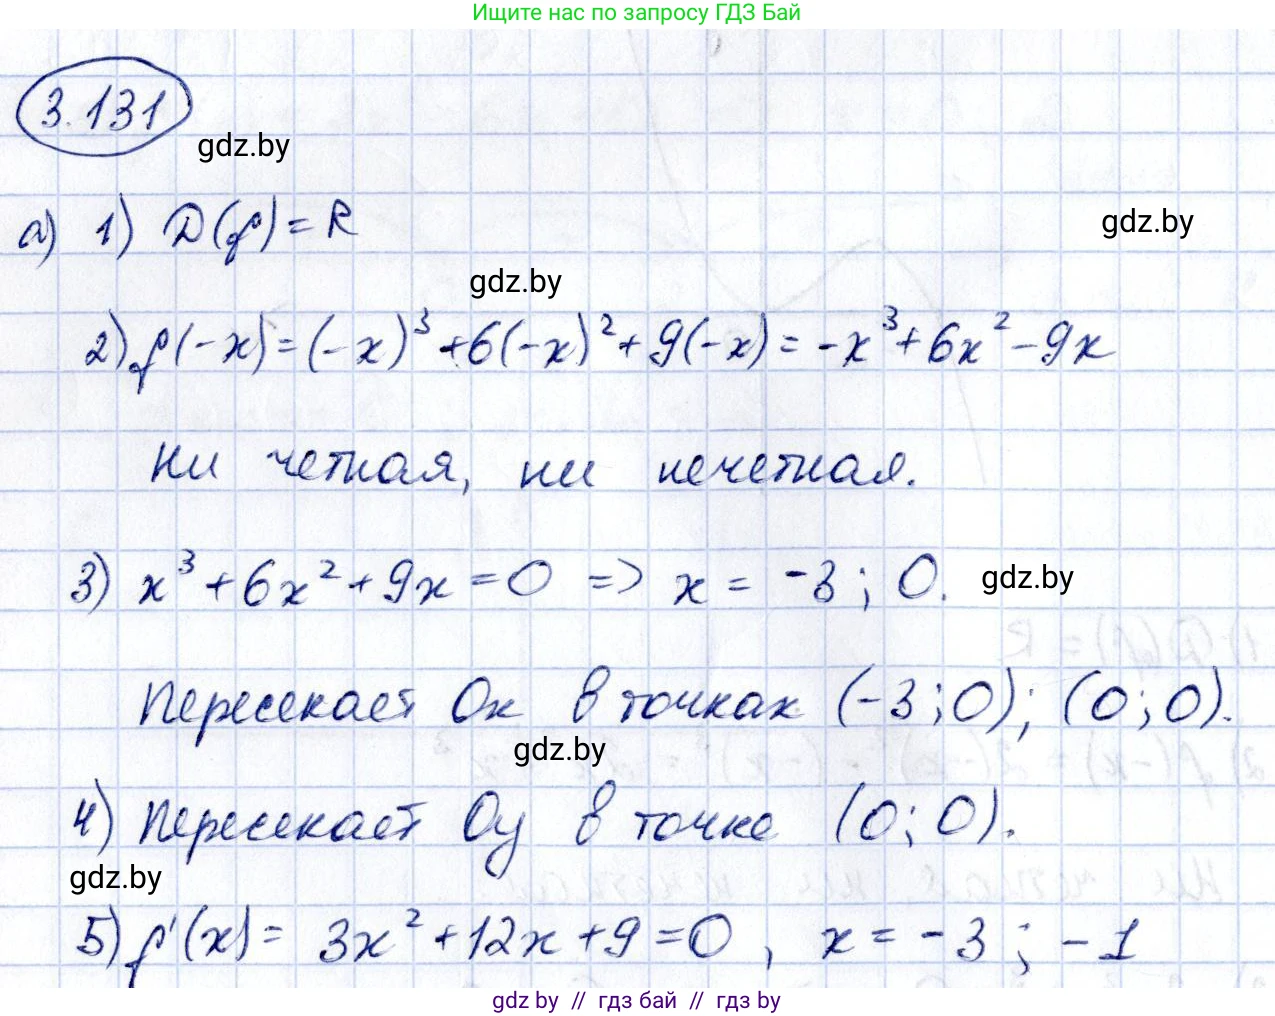 Ищите нас по запросу ГДЗ Бай
3.131
gdz.by
а) 1) D(f) = R
gdz.by
gdz.by
2) f(-x) = (-x)³ + 6(-x)² + 9(-x) = -x³ + 6x² - 9x
Ни четная, ни нечетная.
3) x³ + 6x² + 9x = 0 => x = -3; 0.
gdz.by
Пересекает Ox в точках (-3; 0); (0; 0).
gdz.by
4) Пересекает Oy в точке (0; 0).
gdz.by
5) f'(x) = 3x² + 12x + 9 = 0, x = -3; -1
gdz by // гдз бай // гдз by